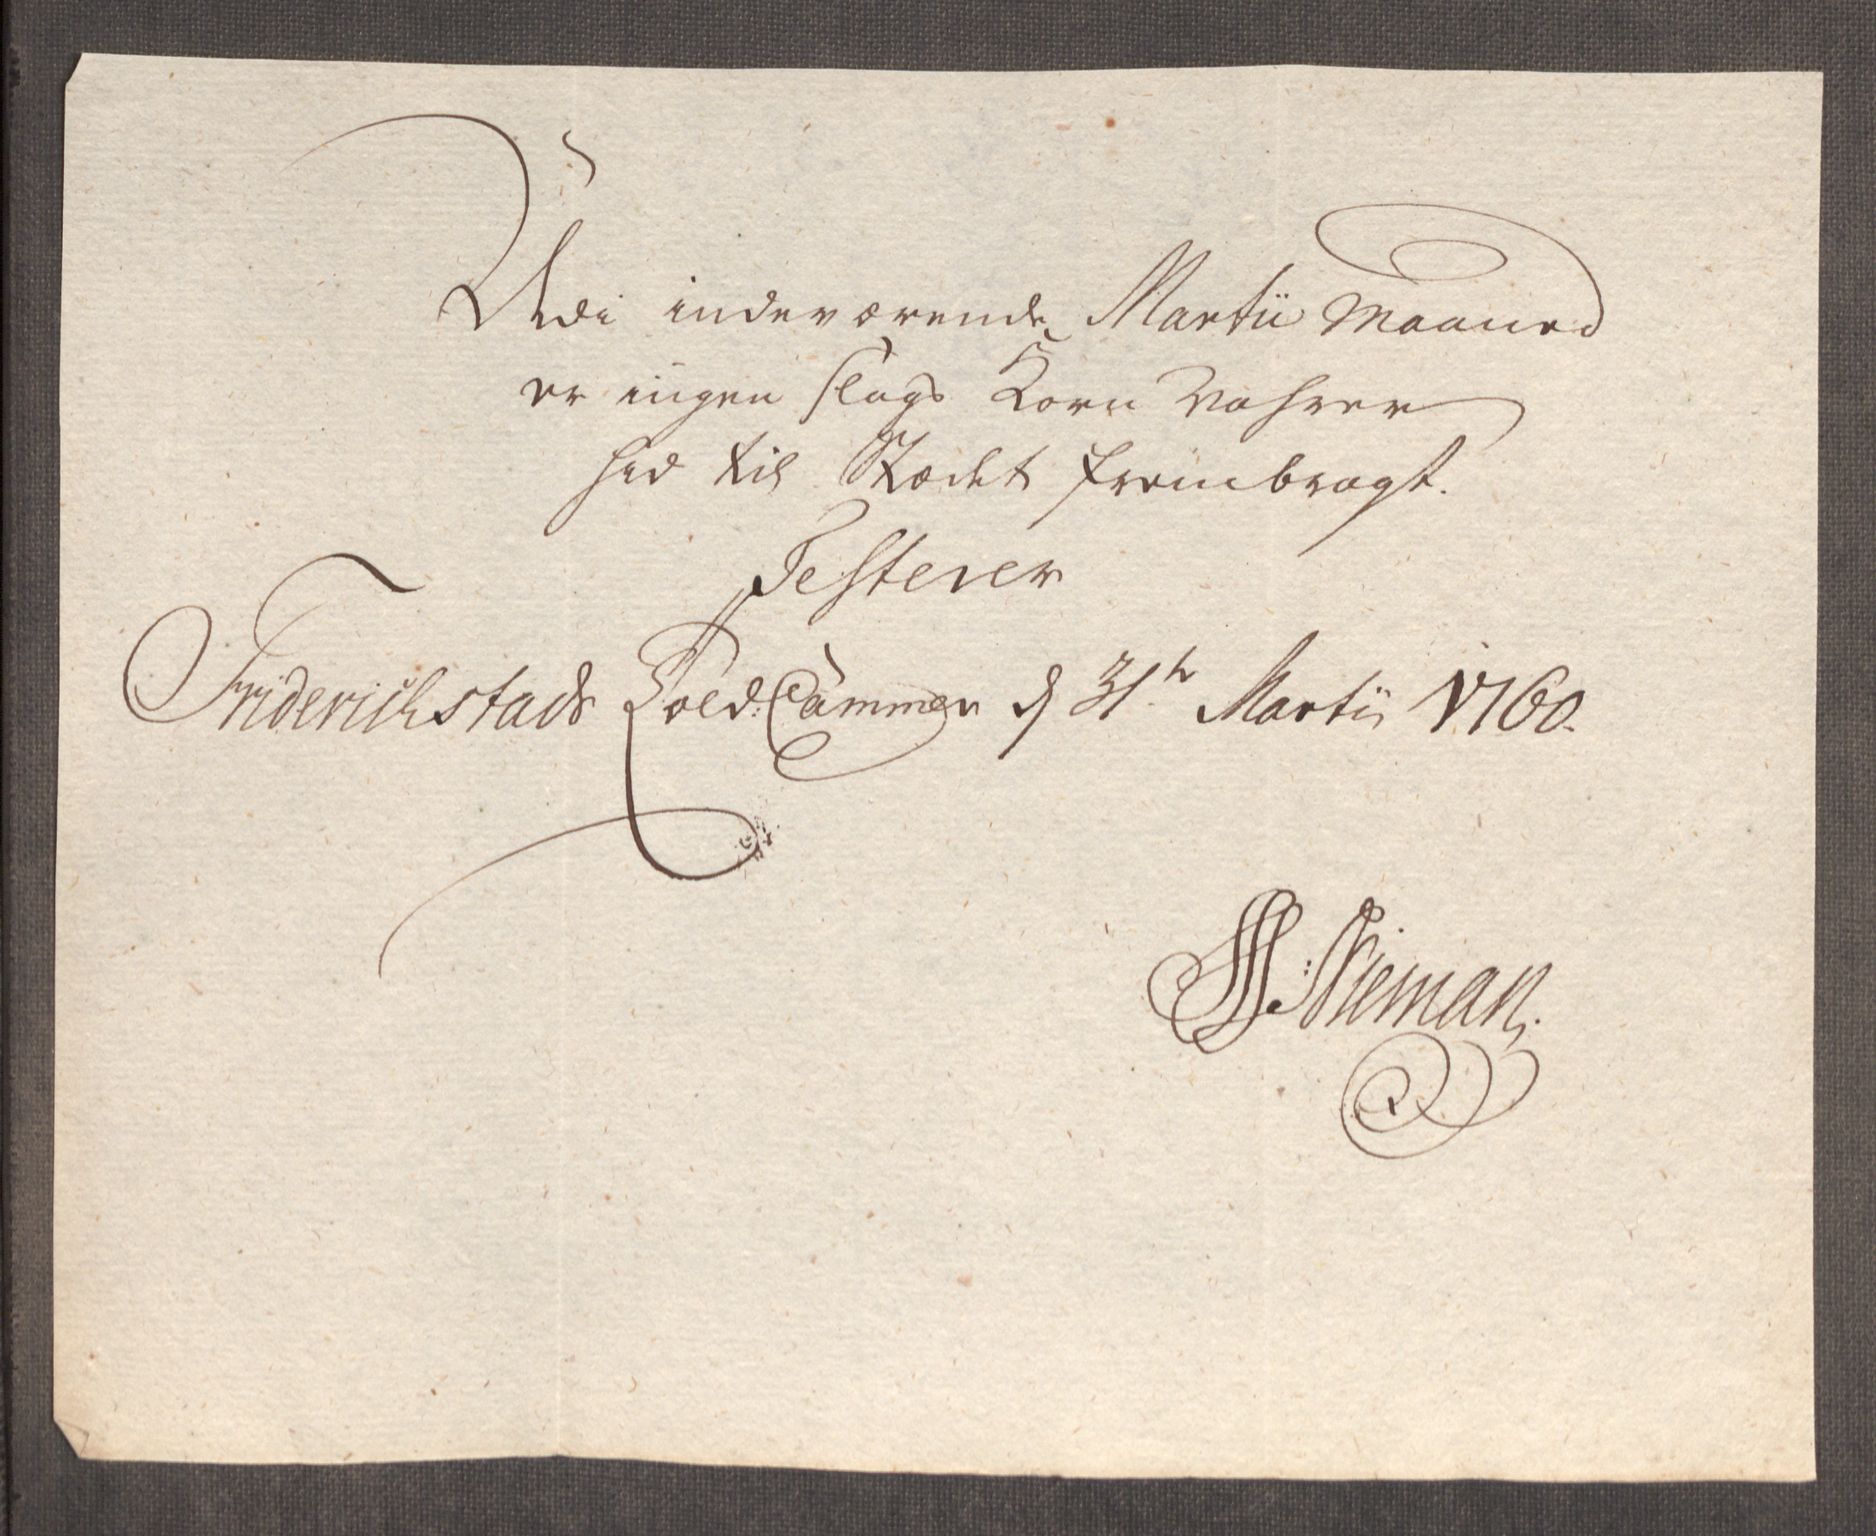 Udi indeværende Martii Maaned
er ingen slags Korn Vahrer
hid til Stædet frembragt.
Testerer
Friderichstads Told: Cammer d 31te Martii 1760.
Nieman.